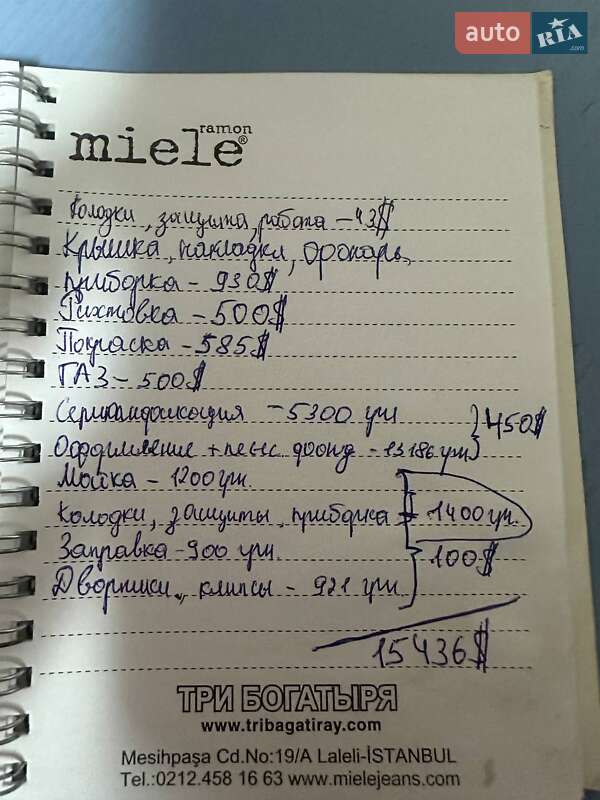 auto RIA .com
ramon
miele®
Колодки, защита, работа - 43$
Крышка, накладки, фонарь,
приборка - 930$
Рихтовка - 500$
Покраска - 585$
ГАЗ - 500$
Сертификация - 5300 грн
450$
Оформление + пенс. фонд - 13186 грн
Мойка - 1200 грн.
Колодки, защиты, приборка = 1400 грн.
Заправка - 900 грн.
100$
Дворники, клипсы - 921 грн
15436$
ТРИ БОГАТЫРЯ
www.tribagatiray.com
Mesihpaşa Cd.No:19/A Laleli-İSTANBUL
Tel.:0212.458 16 63 www.mielejeans.com